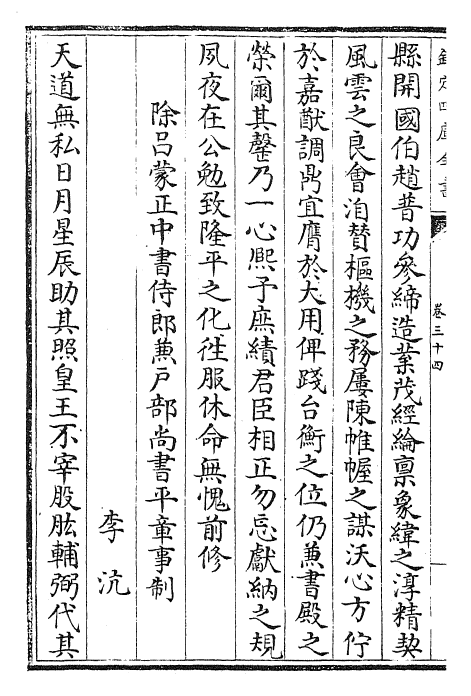 欽定四庫全書
卷三十四
縣開國伯趙普功參締造業茂經綸禀象緯之淳精契
風雲之良會洎替樞機之務屢陳帷幄之謀沃心方佇
於嘉猷調鼎宜膺於大用俾踐台衡之位仍兼書殿之
榮爾其罄乃一心熙予庶績君臣相正勿忘獻納之規
夙夜在公勉致隆平之化徃服休命無愧前修
除吕蒙正中書侍郎兼戸部尚書平章事制
李沆
天道無私日月星辰助其照皇王不宰股肱輔弼代其